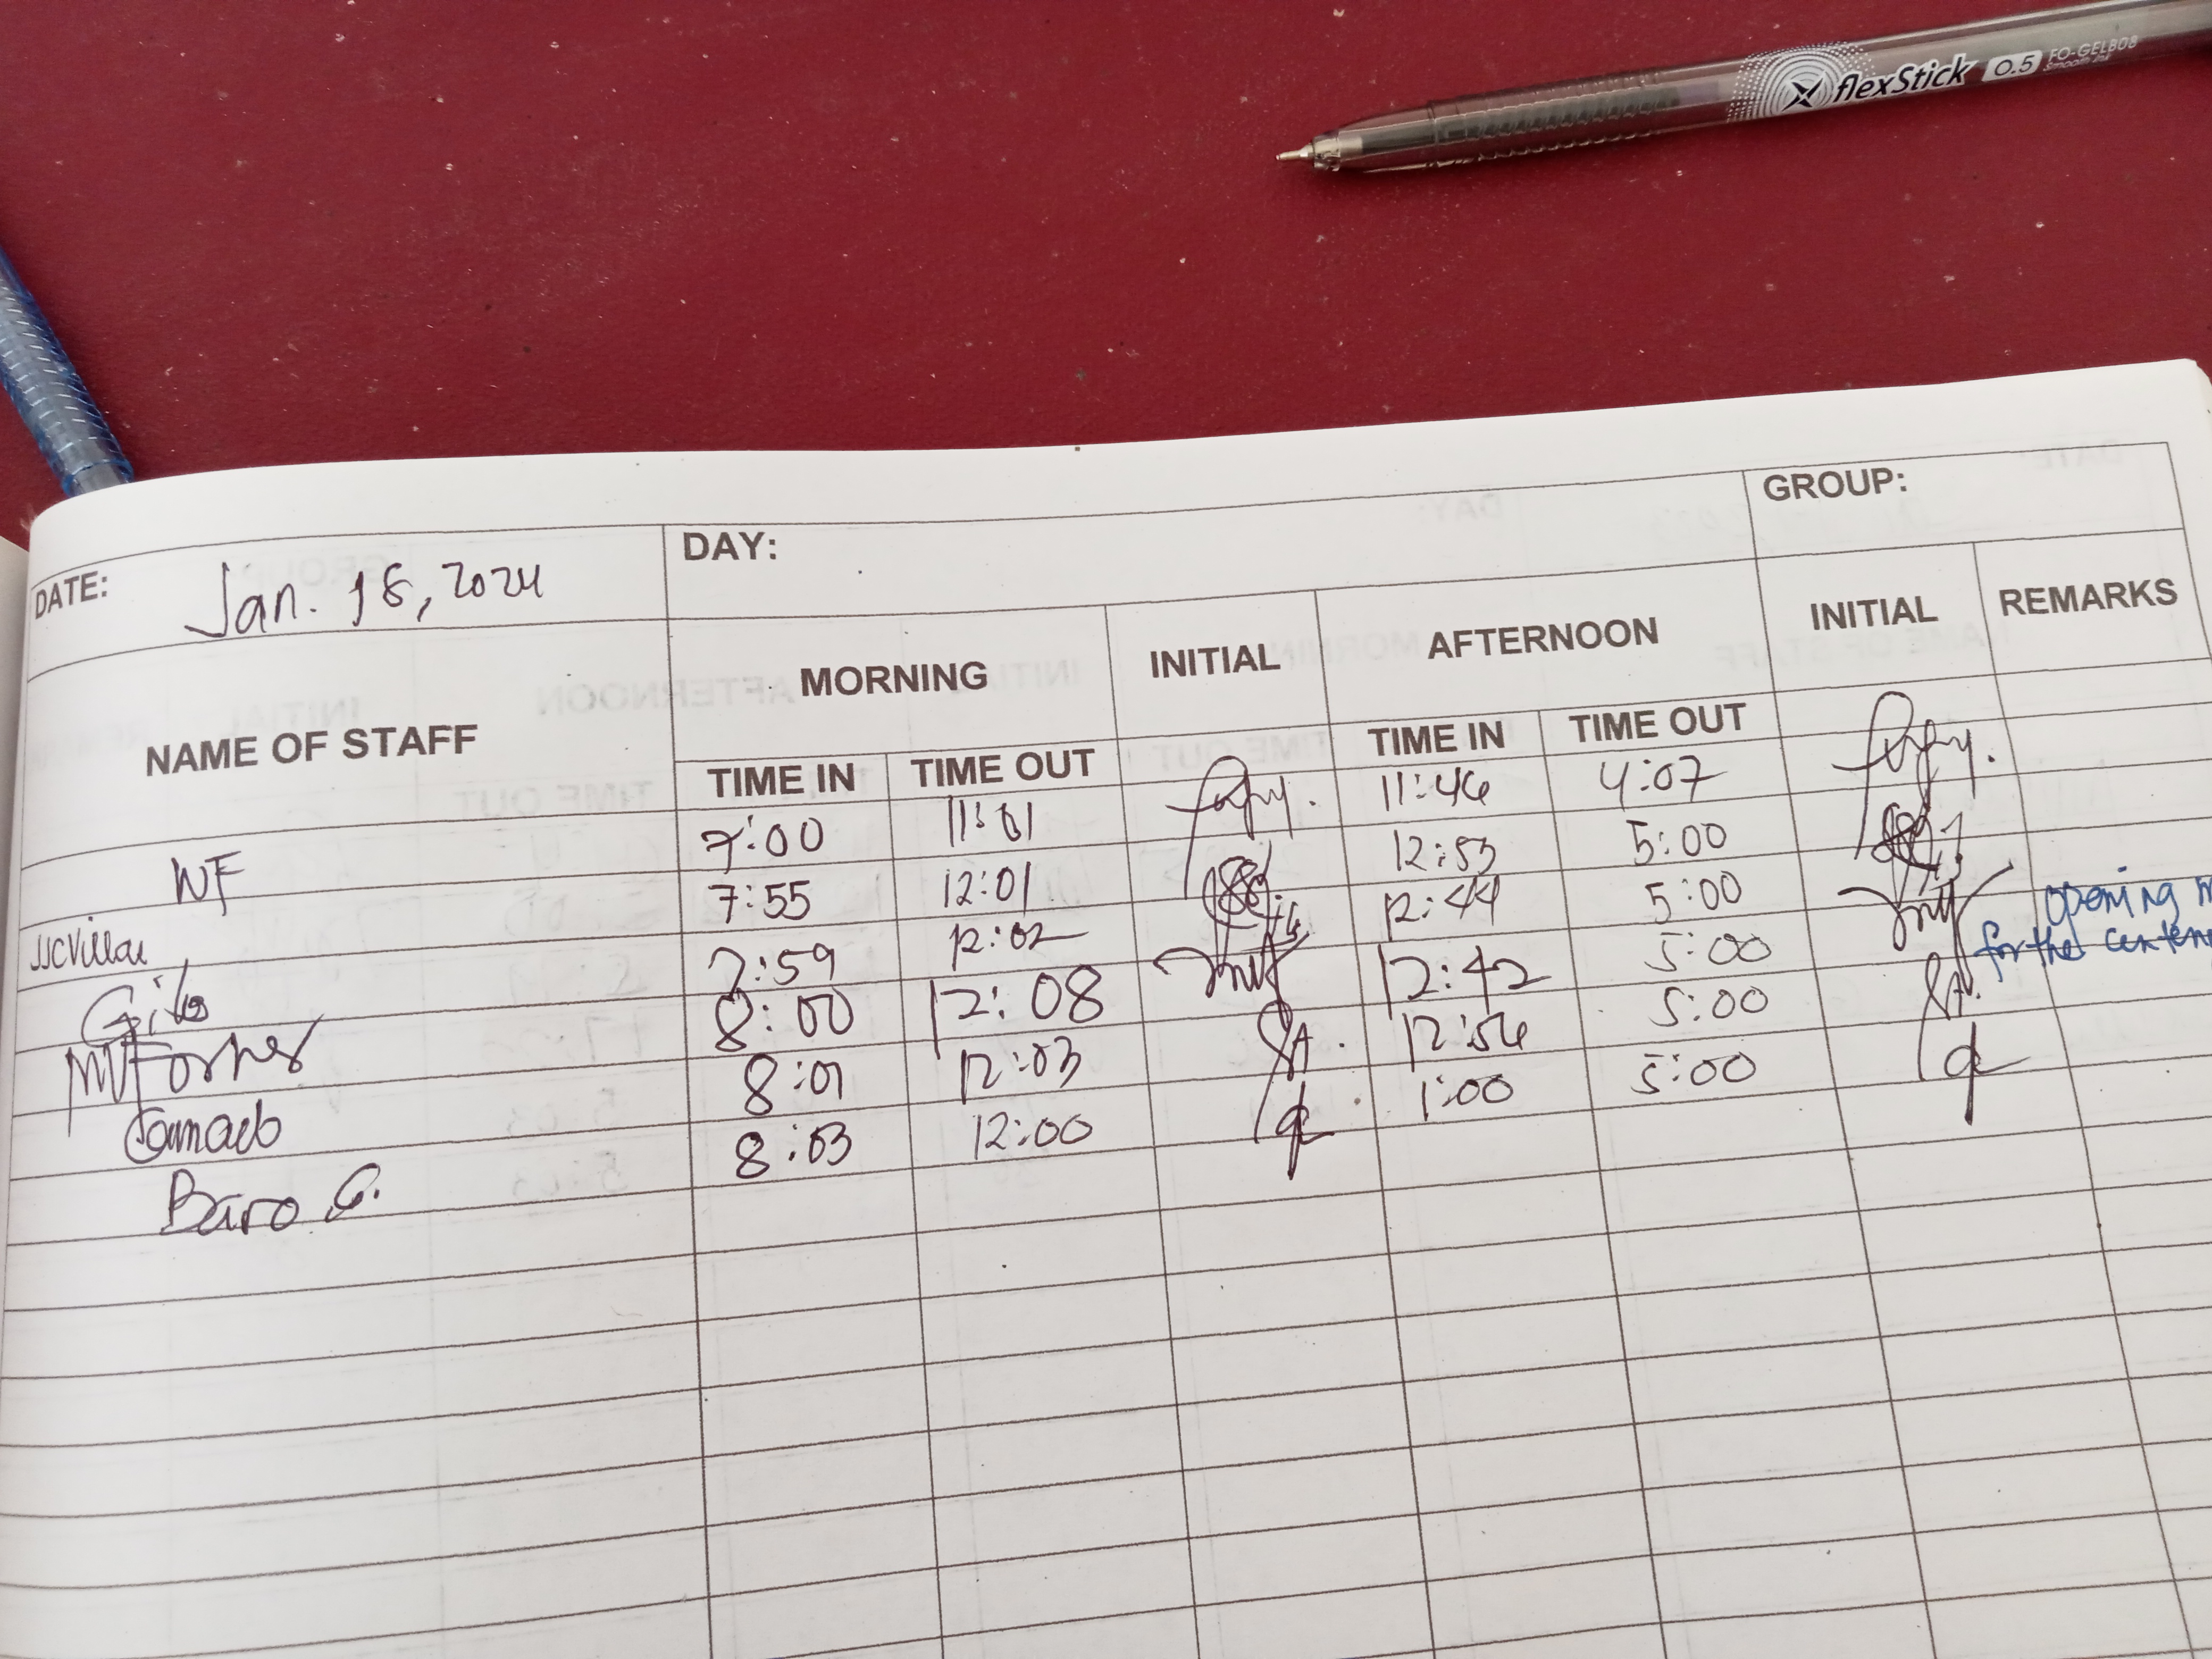 flexStick 0.5 FO-GELB08
Smooth Ink
DATE: Jan. 18, 2024 DAY: GROUP:
NAME OF STAFF MORNING INITIAL AFTERNOON INITIAL REMARKS
TIME IN TIME OUT TIME IN TIME OUT
WF 7:00 11:01 11:46 4:07
JJCVillar 7:55 12:01 12:53 5:00
7:59 12:02 12:44 5:00 opening
MVForner 8:00 12:08 12:42 5:00 for the
8:01 12:03 12:56 5:00
Baro G. 8:03 12:00 1:00 5:00